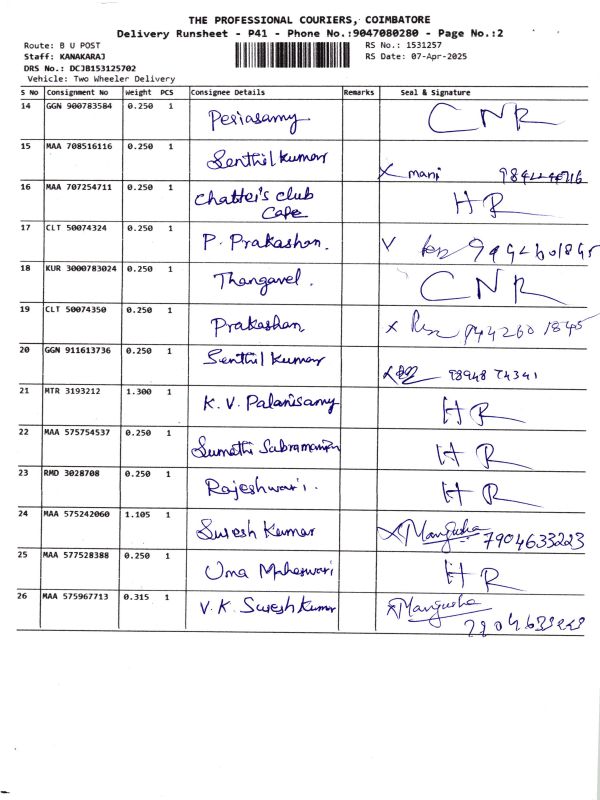 THE PROFESSIONAL COURIERS, COIMBATORE
Delivery Runsheet - P41 - Phone No.:9047080280 - Page No.:2
Route: B U POST RS No.: 1531257
Staff: KANAKARAJ RS Date: 07-Apr-2025
DRS No.: DCJB153125702
Vehicle: Two Wheeler Delivery
S No Consignment No Weight PCS Consignee Details Remarks Seal & Signature
14 GGN 900783584 0.250 1 Periasamy CNR
15 MAA 708516116 0.250 1 Senthil kumar X mani
16 MAA 707254711 0.250 1 Chatter's club HR
Cafe
17 CLT 50074324 0.250 1 P. Prakashan.
18 KUR 3000783024 0.250 1 Thangavel. CNR
19 CLT 50074350 0.250 1 Prakashan X 9442601845
20 GGN 911613736 0.250 1 Senthil kumar 98948 74341
21 MTR 3193212 1.300 1 K. V. Palanisamy HR
22 MAA 575754537 0.250 1 Sumathi HR
23 RMD 3028708 0.250 1 Rajeshwari. HR
24 MAA 575242060 1.105 1 Suresh Kumar X Mangusha 7904633223
25 MAA 577528388 0.250 1 Uma Maheswari HR
26 MAA 575967713 0.315 1 V. K. Suresh Kumar X Mangusha